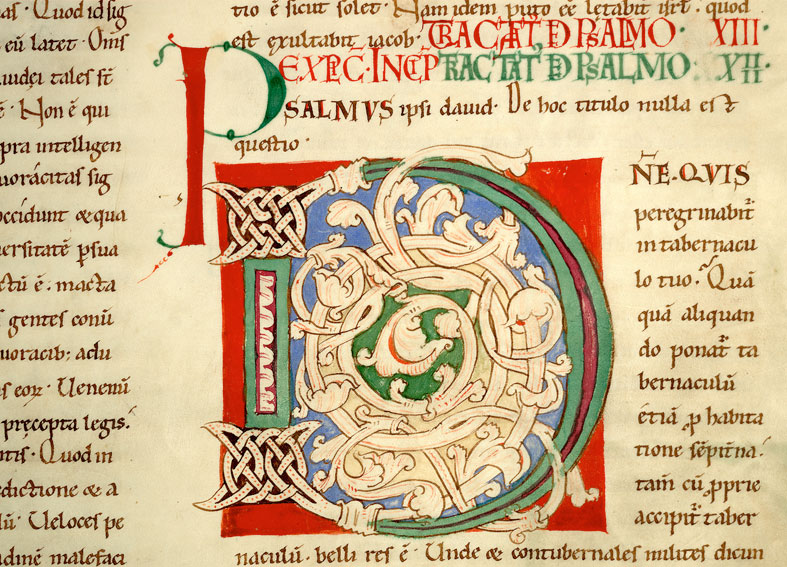 as · Quod id sig
eū latet · Om̄s
uidei tales st̄
ē · Non ē qui
pra intelligen
uorácitas sig
occidunt & qua
uersitatē ꝑsua
ctū ē · macta
s gentes conū
uoracib; adu
is eoꝝ · Uenenū
precepta legis ·
ntis · Quod in
edictione & a
lū · Ueloces pe
udinē malefaci
tio ē sicut solet · Nam idem puto eē lętabit̄ isrł · quod
est exultabit iacob · TRACTAT̄ D̄ PSALMO · XIII ·
EXPĹC · INCĪP TRACTAT̄ D̄ PSALMO · XIIII ·
PSALMVS ipsi dauid · De hoc titulo nulla est
questio ·
DÑE · QVIS
peregrinabit̄
in tabernacu
lo tuo · Quā
quā aliquan
do ponat̄ ta
bernaculū
étiā ꝓ habita
tione sēpit̄na ·
tam̄ cū ꝓprie
accipit̄ taber
naculū · belli res ē · Unde & contubernales milites dicun